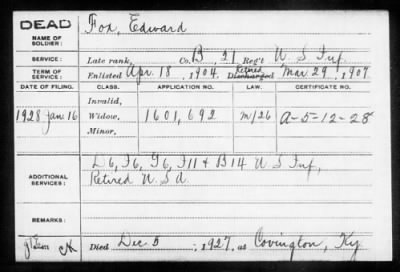 DEAD
NAME OF SOLDIER: Fox, Edward
SERVICE: Late rank, Co. B, 21 Reg't U S Inf.
TERM OF SERVICE: Enlisted Apr. 18, 1904, Retired Discharged Mar 29, 1907
DATE OF FILING. CLASS. APPLICATION NO. LAW. CERTIFICATE NO.
Invalid,
1928 Jan. 16 Widow, 1601,692 M/26 A-5-12-28
Minor,
ADDITIONAL SERVICES: L6, I6, G6, I11 & B14 U S Inf,
Retired U.S.A.
REMARKS:
Died Dec. 5, 1927, at Covington, Ky